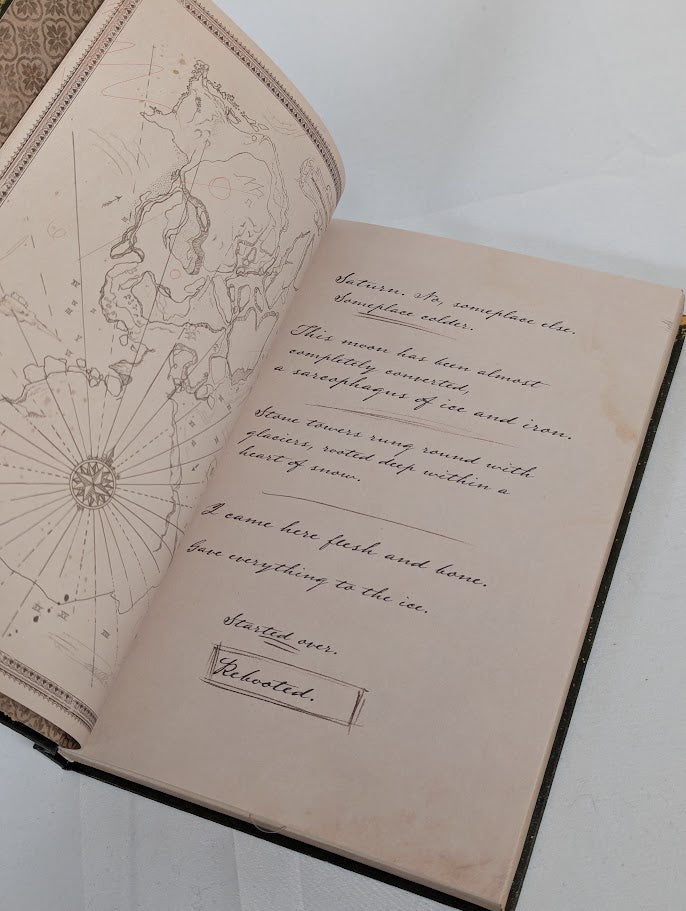 Saturn. No, someplace else.
Someplace colder.
This moon has been almost
completely converted,
a sarcophagus of ice and iron.
Stone towers rung round with
glaciers, rooted deep within a
heart of snow.
I came here flesh and bone.
Gave everything to the ice.
Started over.
Rebooted.